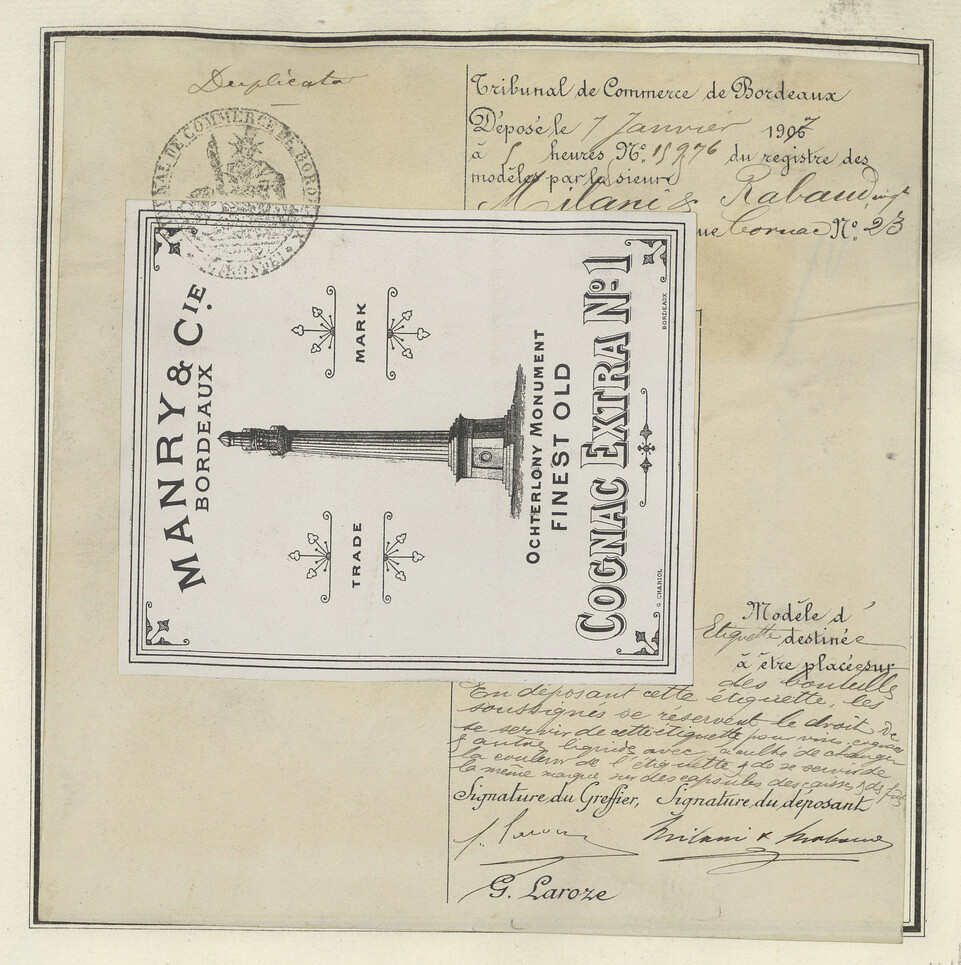 Duplicata
TRIBUNAL DE COMMERCE DE BORDEAUX
Tribunal de Commerce de Bordeaux
Déposé le 7 Janvier 1907
à heures No. 15976 du registre des
modèles par les sieurs
Milani & Rabaud
rue Cornac No. 23
MANRY & CIE.
BORDEAUX
TRADE MARK
OCHTERLONY MONUMENT
FINEST OLD
COGNAC EXTRA No. 1
G. CHARIOL BORDEAUX
Modèle d'
Etiquette destinée
à être placée sur
des bouteilles
En déposant cette étiquette, les
soussignés se réservent le droit de
se servir de cette étiquette pour vins, cognacs
& autre liquide avec faculté de changer
la couleur de l'étiquette & de se servir de
la même marque sur des capsules des caisses & des fûts
Signature du Greffier, Signature du déposant
Milani & Rabaud
G. Laroze